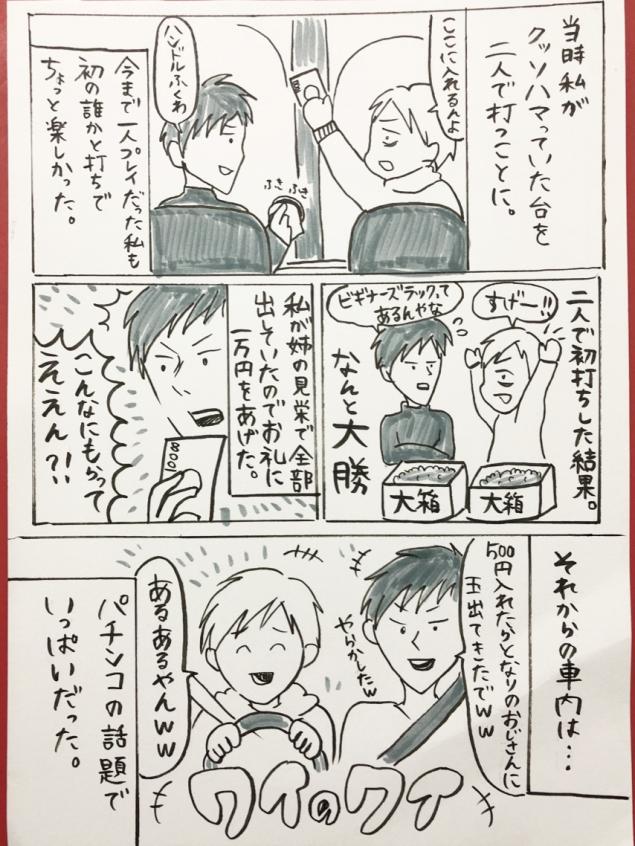 当時私が
クッソハマっていた台を
二人で打つことに。
ここに入れるんよ
ハンドルふくわ
ふき
ふき
今まで一人プレイだった私も
初の誰かと打ちで
ちょっと楽しかった。
二人で初打ちした結果。
すげー!!
ビギナーズラックって
あるんやな
なんと大勝
大箱
大箱
私が姉の見栄で全部
出していたのでお礼に
一万円をあげた。
こんなにもらって
ええん?!
それからの車内は…
500円入れたらとなりのおじさんに
玉出てきたでww
やらかしたw
あるあるやんww
ワイのワイ
パチンコの話題で
いっぱいだった。